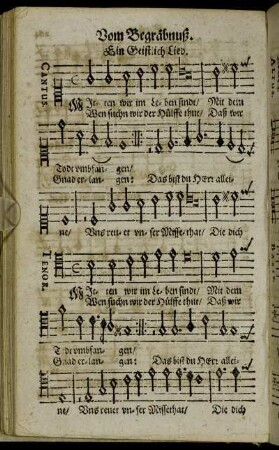 Vom Begräbnuß.
Ein Geistlich Lied.
CANTUS.
MItten wir im Leben sindt/ Mit dem
Wen suchn wir der Hülffe thut/ Daß wir
Todt vmbfan- gen/
Gnad erlan- gen: Das bist du HErr allei-
ne/ Vns reu- et vn- ser Misse- that/ Die dich
TENOR.
MIt- ten wir im Leben sindt/ Mit dem
Wen suchn wir der Hülffe thut/ Daß wir
Todt vmbfan- gen/
Gnad erlan- gen: Das bist du HErr allei-
ne/ Vns reuet vn- ser Missethat/ Die dich